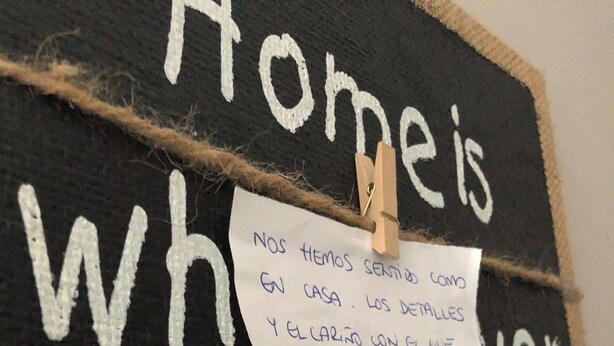 Home is
wh
NOS HEMOS SENTIDO COMO
EN CASA. LOS DETALLES
Y EL CARIÑO CON EL